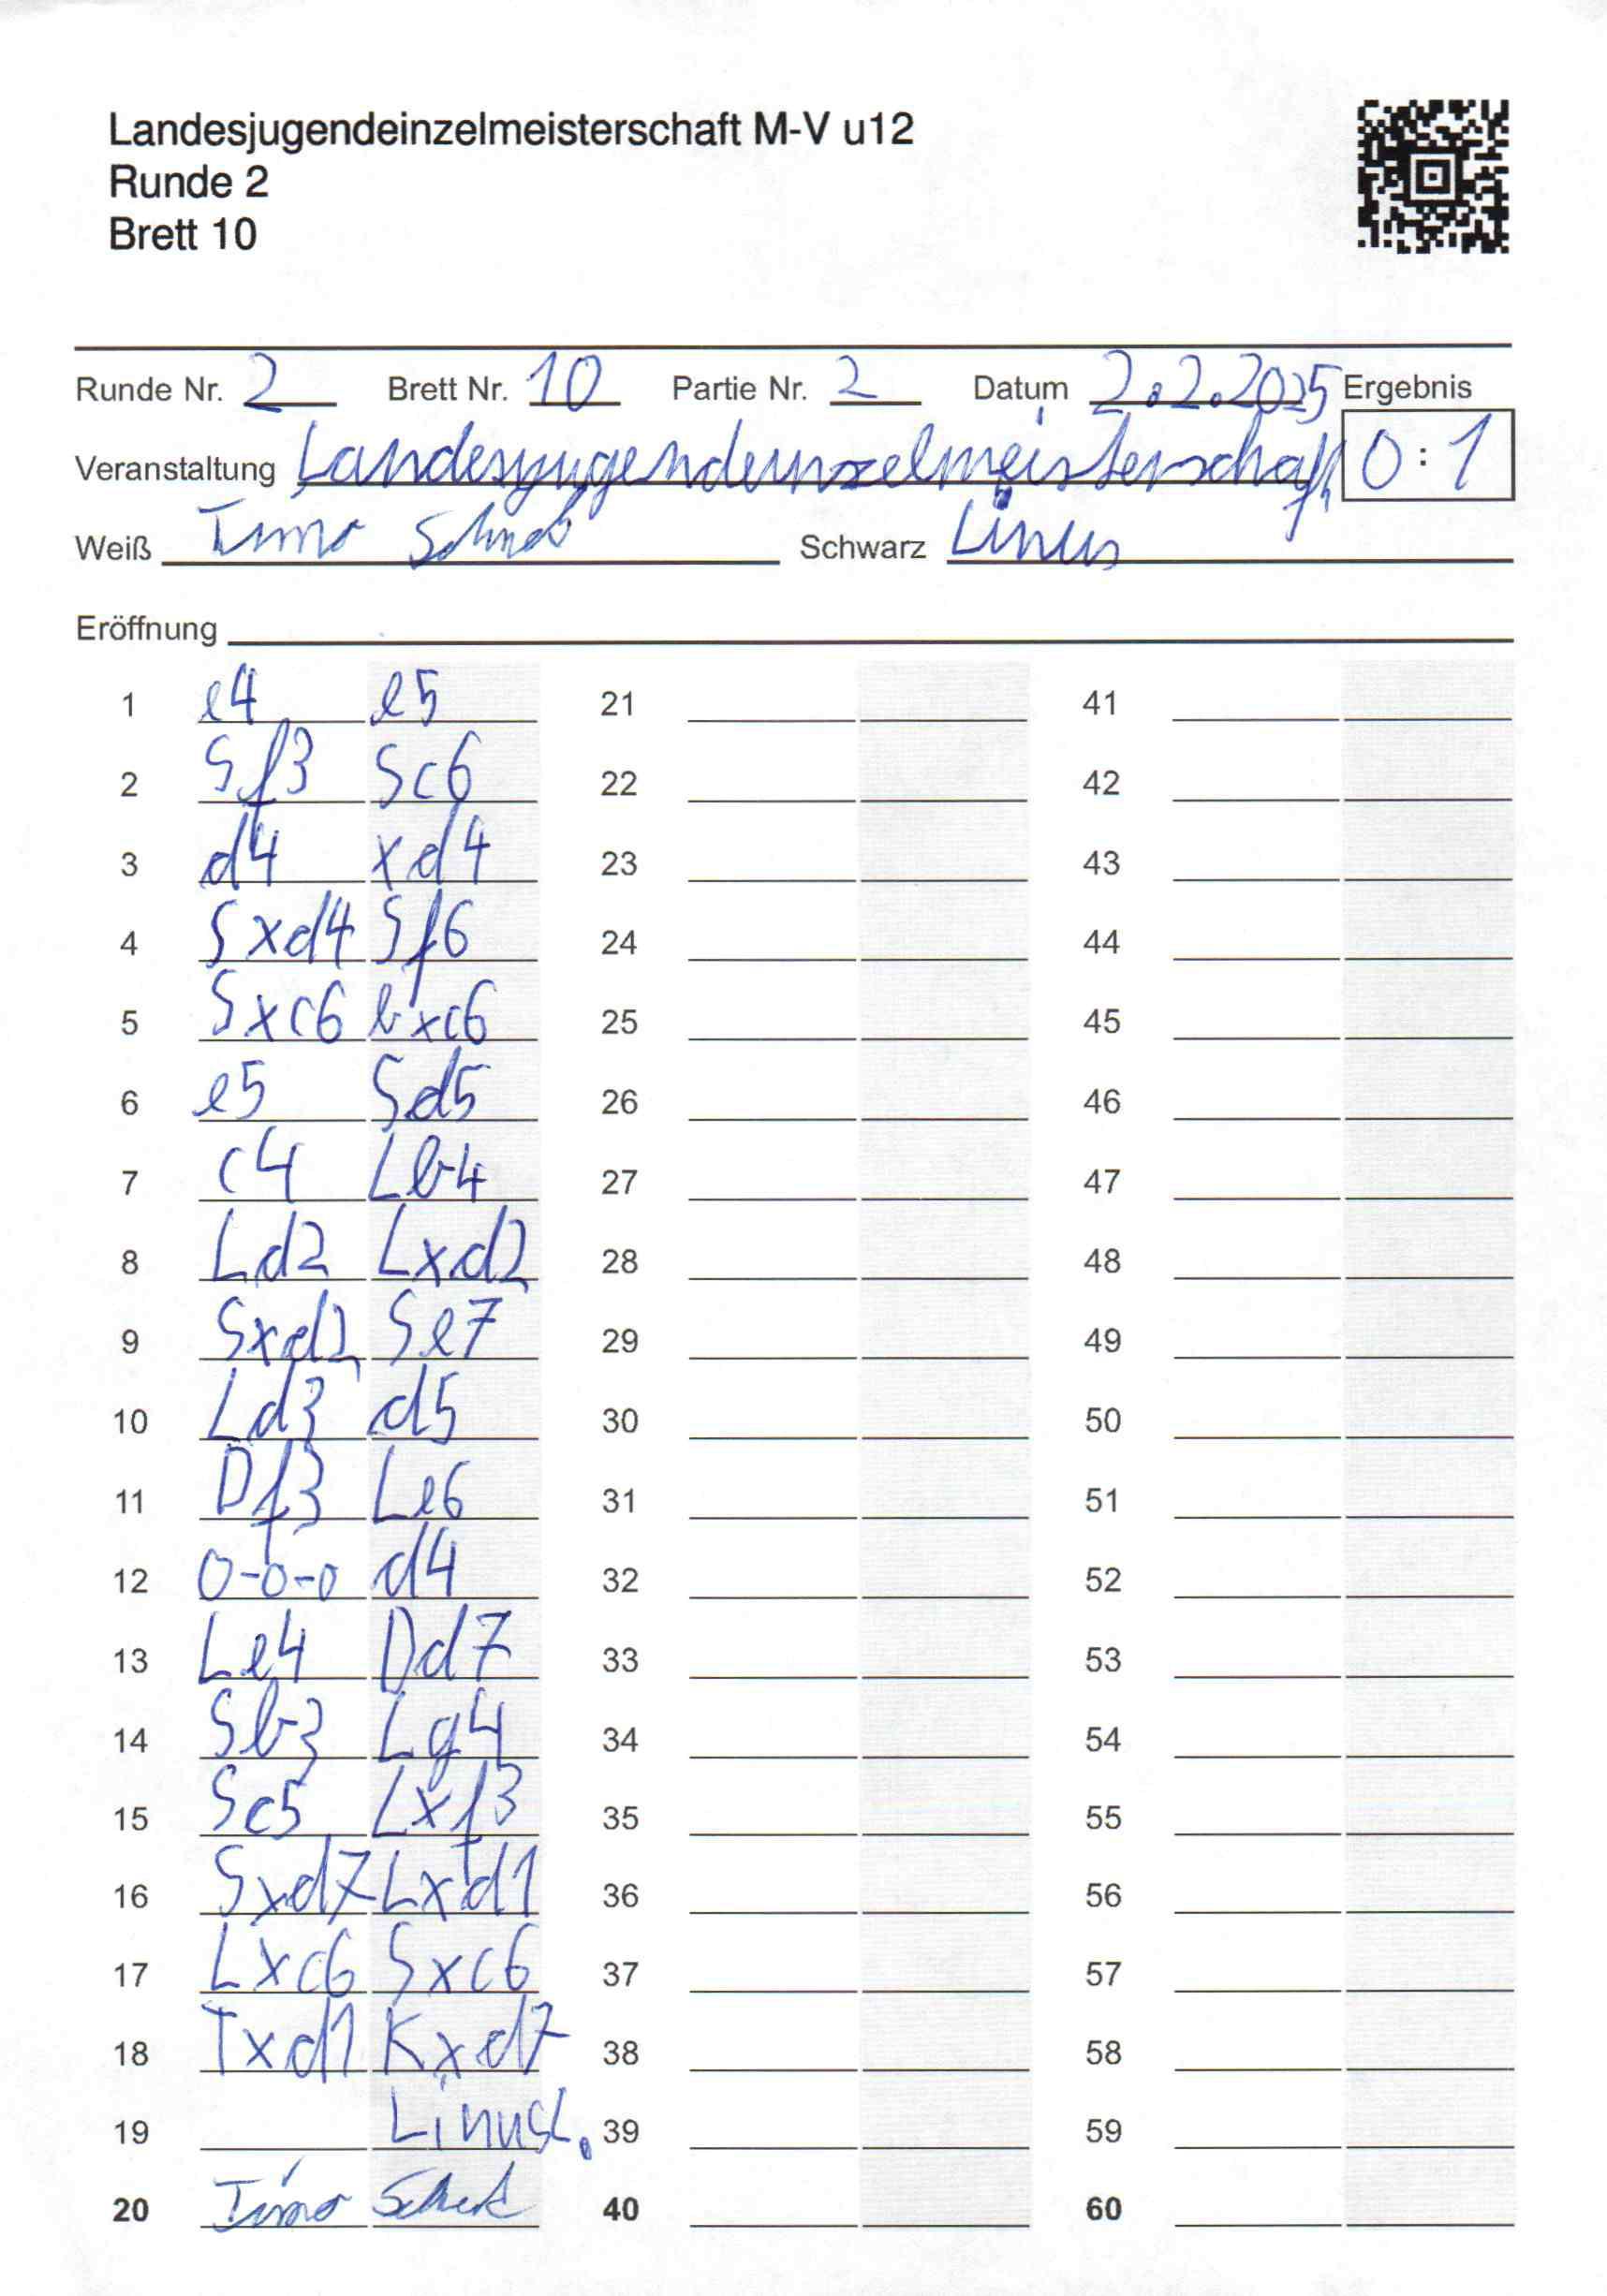 Landesjugendeinzelmeisterschaft M-V u12
Runde 2
Brett 10
Runde Nr. 2 Brett Nr. 10 Partie Nr. 2 Datum 2.2.2025 Ergebnis
Veranstaltung Landesjugendeinzelmeisterschaft 0 : 1
Weiß Timo Schwarz Linus
Eröffnung
1 e4 e5 21 41
2 Sf3 Sc6 22 42
3 d4 xd4 23 43
4 Sxd4 Sf6 24 44
5 Sxc6 bxc6 25 45
6 e5 Sd5 26 46
7 c4 Lb4 27 47
8 Ld2 Lxd2 28 48
9 Sxd2 Se7 29 49
10 Ld3 d5 30 50
11 Df3 Le6 31 51
12 0-0-0 d4 32 52
13 Le4 Dd7 33 53
14 Sb3 Lg4 34 54
15 Sc5 Lxf3 35 55
16 Sxd7 Lxd1 36 56
17 Lxc6 Sxc6 37 57
18 Txd1 Kxd7 38 58
19 Linus L. 39 59
20 Timo 40 60